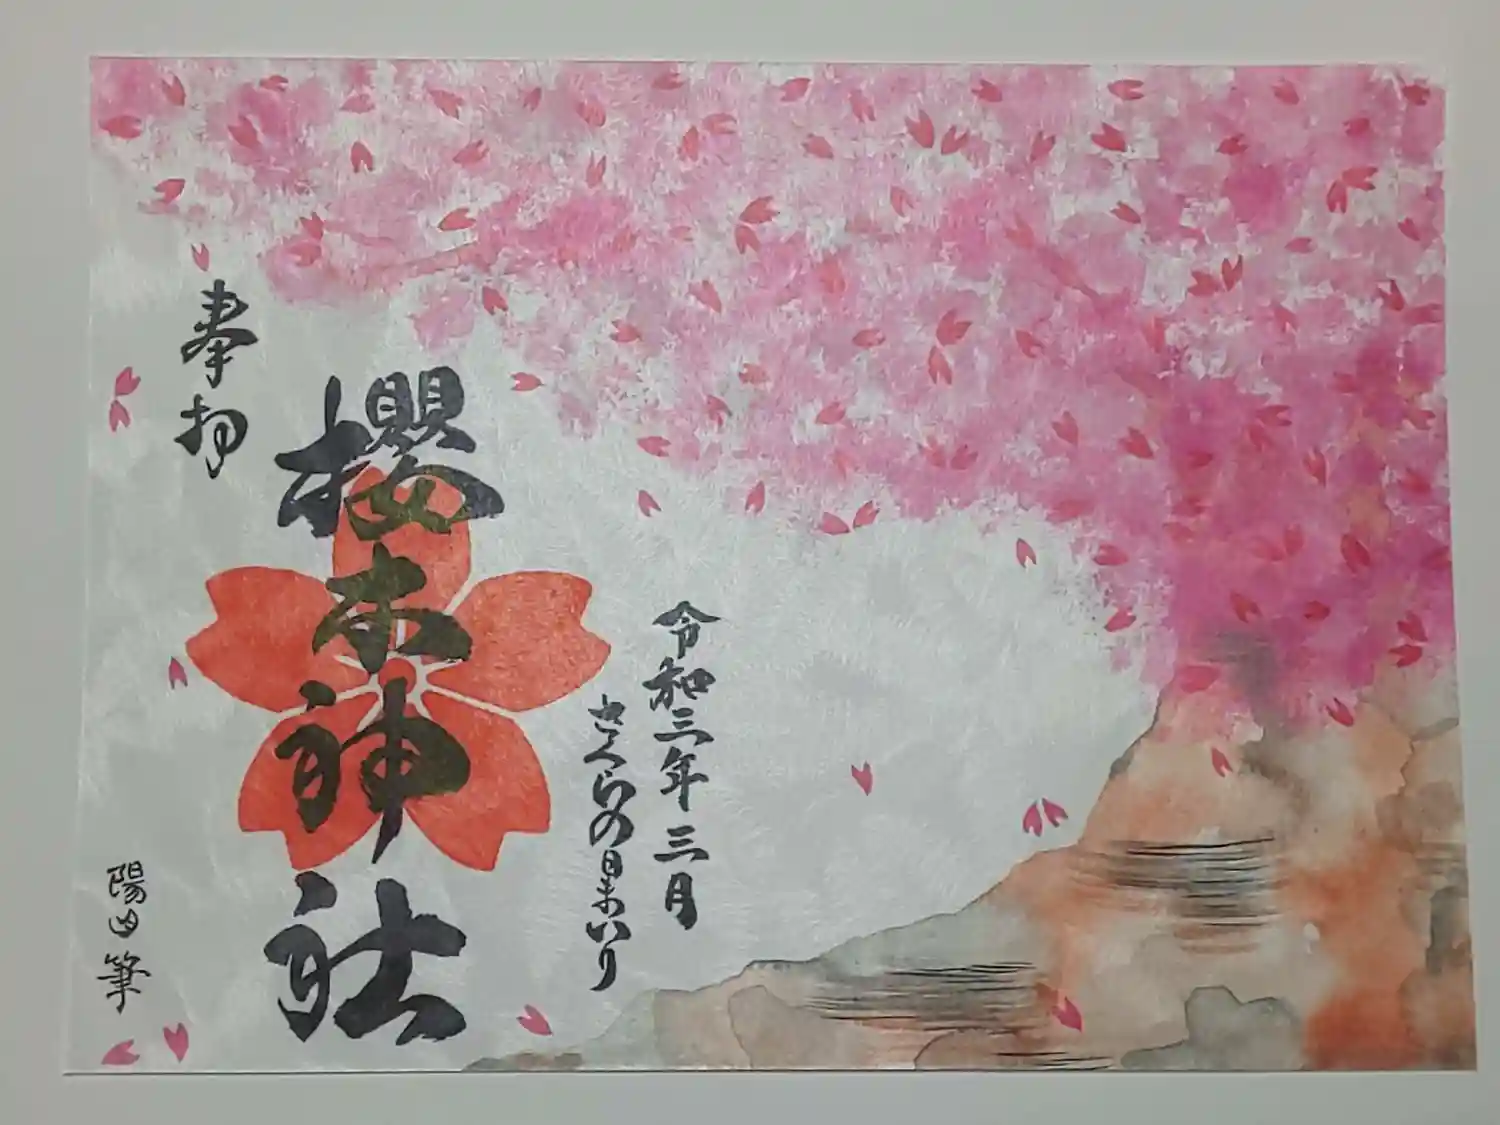 令和三年三月
さくらの日まいり
奉拝
櫻木神社
陽田筆